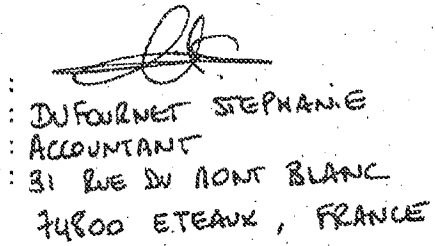 :
: DUFOURNET STEPHANIE
: ACCOUNTANT
: 31 RUE DU MONT BLANC
74800 ETEAUX, FRANCE